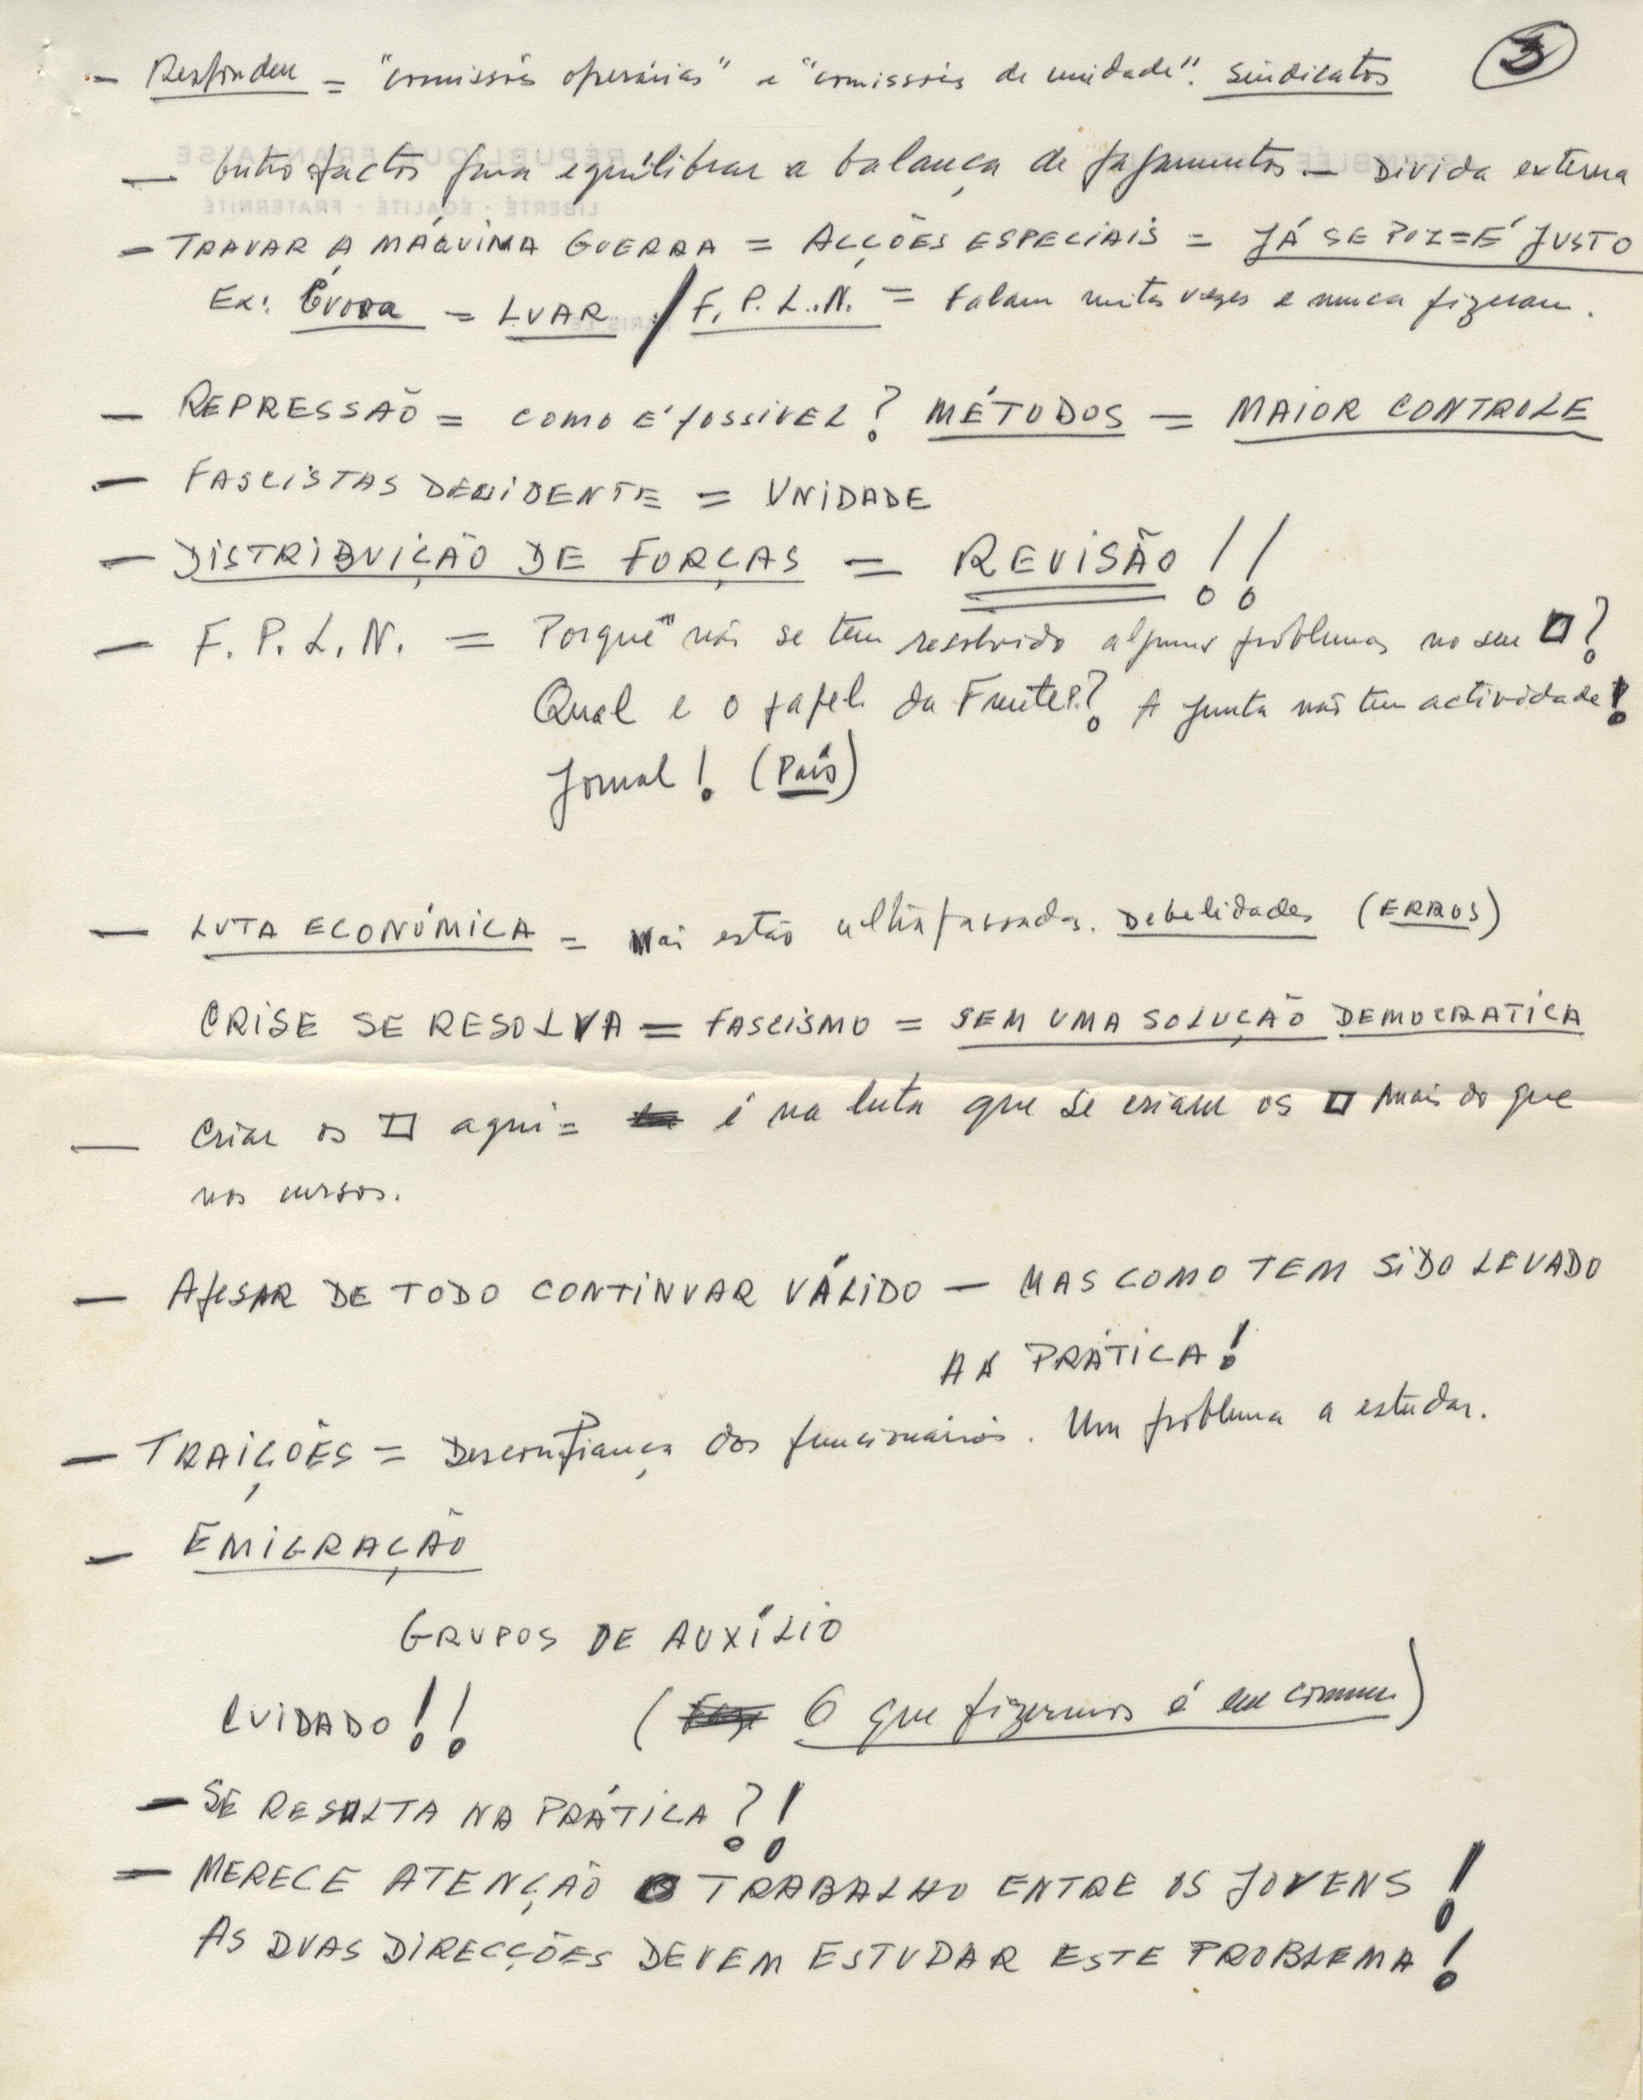 ③
— Responder = "comissões operárias" e "comissões de unidade". Sindicatos
— Outro factor para equilibrar a balança de pagamentos — Divida externa
— TRAVAR A MÁQUINA GUERRA = ACÇÕES ESPECIAIS = JÁ SE POZ = É JUSTO
Ex: Évora = LUAR / F.P.L.N. = Falam muitas vezes e nunca fizeram.
— REPRESSÃO = COMO É POSSIVEL? MÉTODOS = MAIOR CONTROLE
— FASCISTAS DECIDENTE = UNIDADE
— DISTRIBUIÇÃO DE FORÇAS = REVISÃO!!
— F.P.L.N. = Porquê não se tem resolvido alguns problemas no seu □?
Qual e o papel da Frente? A Junta não tem actividade!
Jornal! (País)
— LUTA ECONÓMICA = Não estão ultrapassadas. Debelidades (ERROS)
CRISE SE RESOLVA = FASCISMO = SEM UMA SOLUÇÃO DEMOCRATICA
— Criar os □ aqui = é na luta que se criam os □ mais do que
nos cursos.
— APESAR DE TODO CONTINUAR VÁLIDO — MAS COMO TEM SIDO LEVADO
AA PRÁTICA!
— TRAIÇÕES = Desconfiança dos funcionários. Um problema a estudar.
— EMIGRAÇÃO
GRUPOS DE AUXÍLIO
CUIDADO!! ( O que fizermos é em comum)
— SE RESULTA NA PRÁTICA?!
— MERECE ATENÇÃO O TRABALHO ENTRE OS JOVENS!
AS DUAS DIRECÇÕES DEVEM ESTUDAR ESTE PROBLEMA!